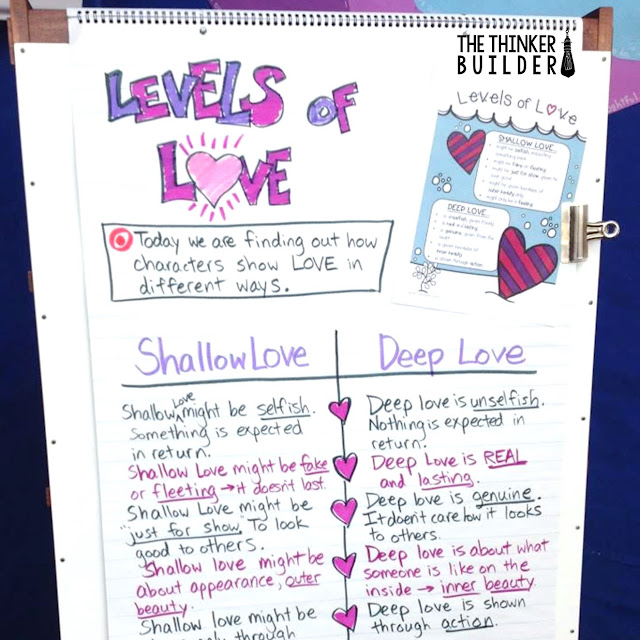 THE THINKER
BUILDER
LEVELS OF
LOVE
Today we are finding out how
characters show LOVE in
different ways.
Levels of Love
SHALLOW LOVE
DEEP LOVE
Shallow Love
Shallow Love might be selfish.
Something is expected
in return.
Shallow Love might be fake
or fleeting → it doesn't last.
Shallow Love might be
"just for show." To look
good to others.
Shallow love might be
about appearance, outer
beauty.
Shallow love might be
through
Deep Love
Deep love is unselfish.
Nothing is expected in
return.
Deep Love is REAL
and lasting.
Deep love is genuine.
It doesn't care how it looks
to others.
Deep love is about what
someone is like on the
inside → inner beauty.
Deep love is shown
through action.